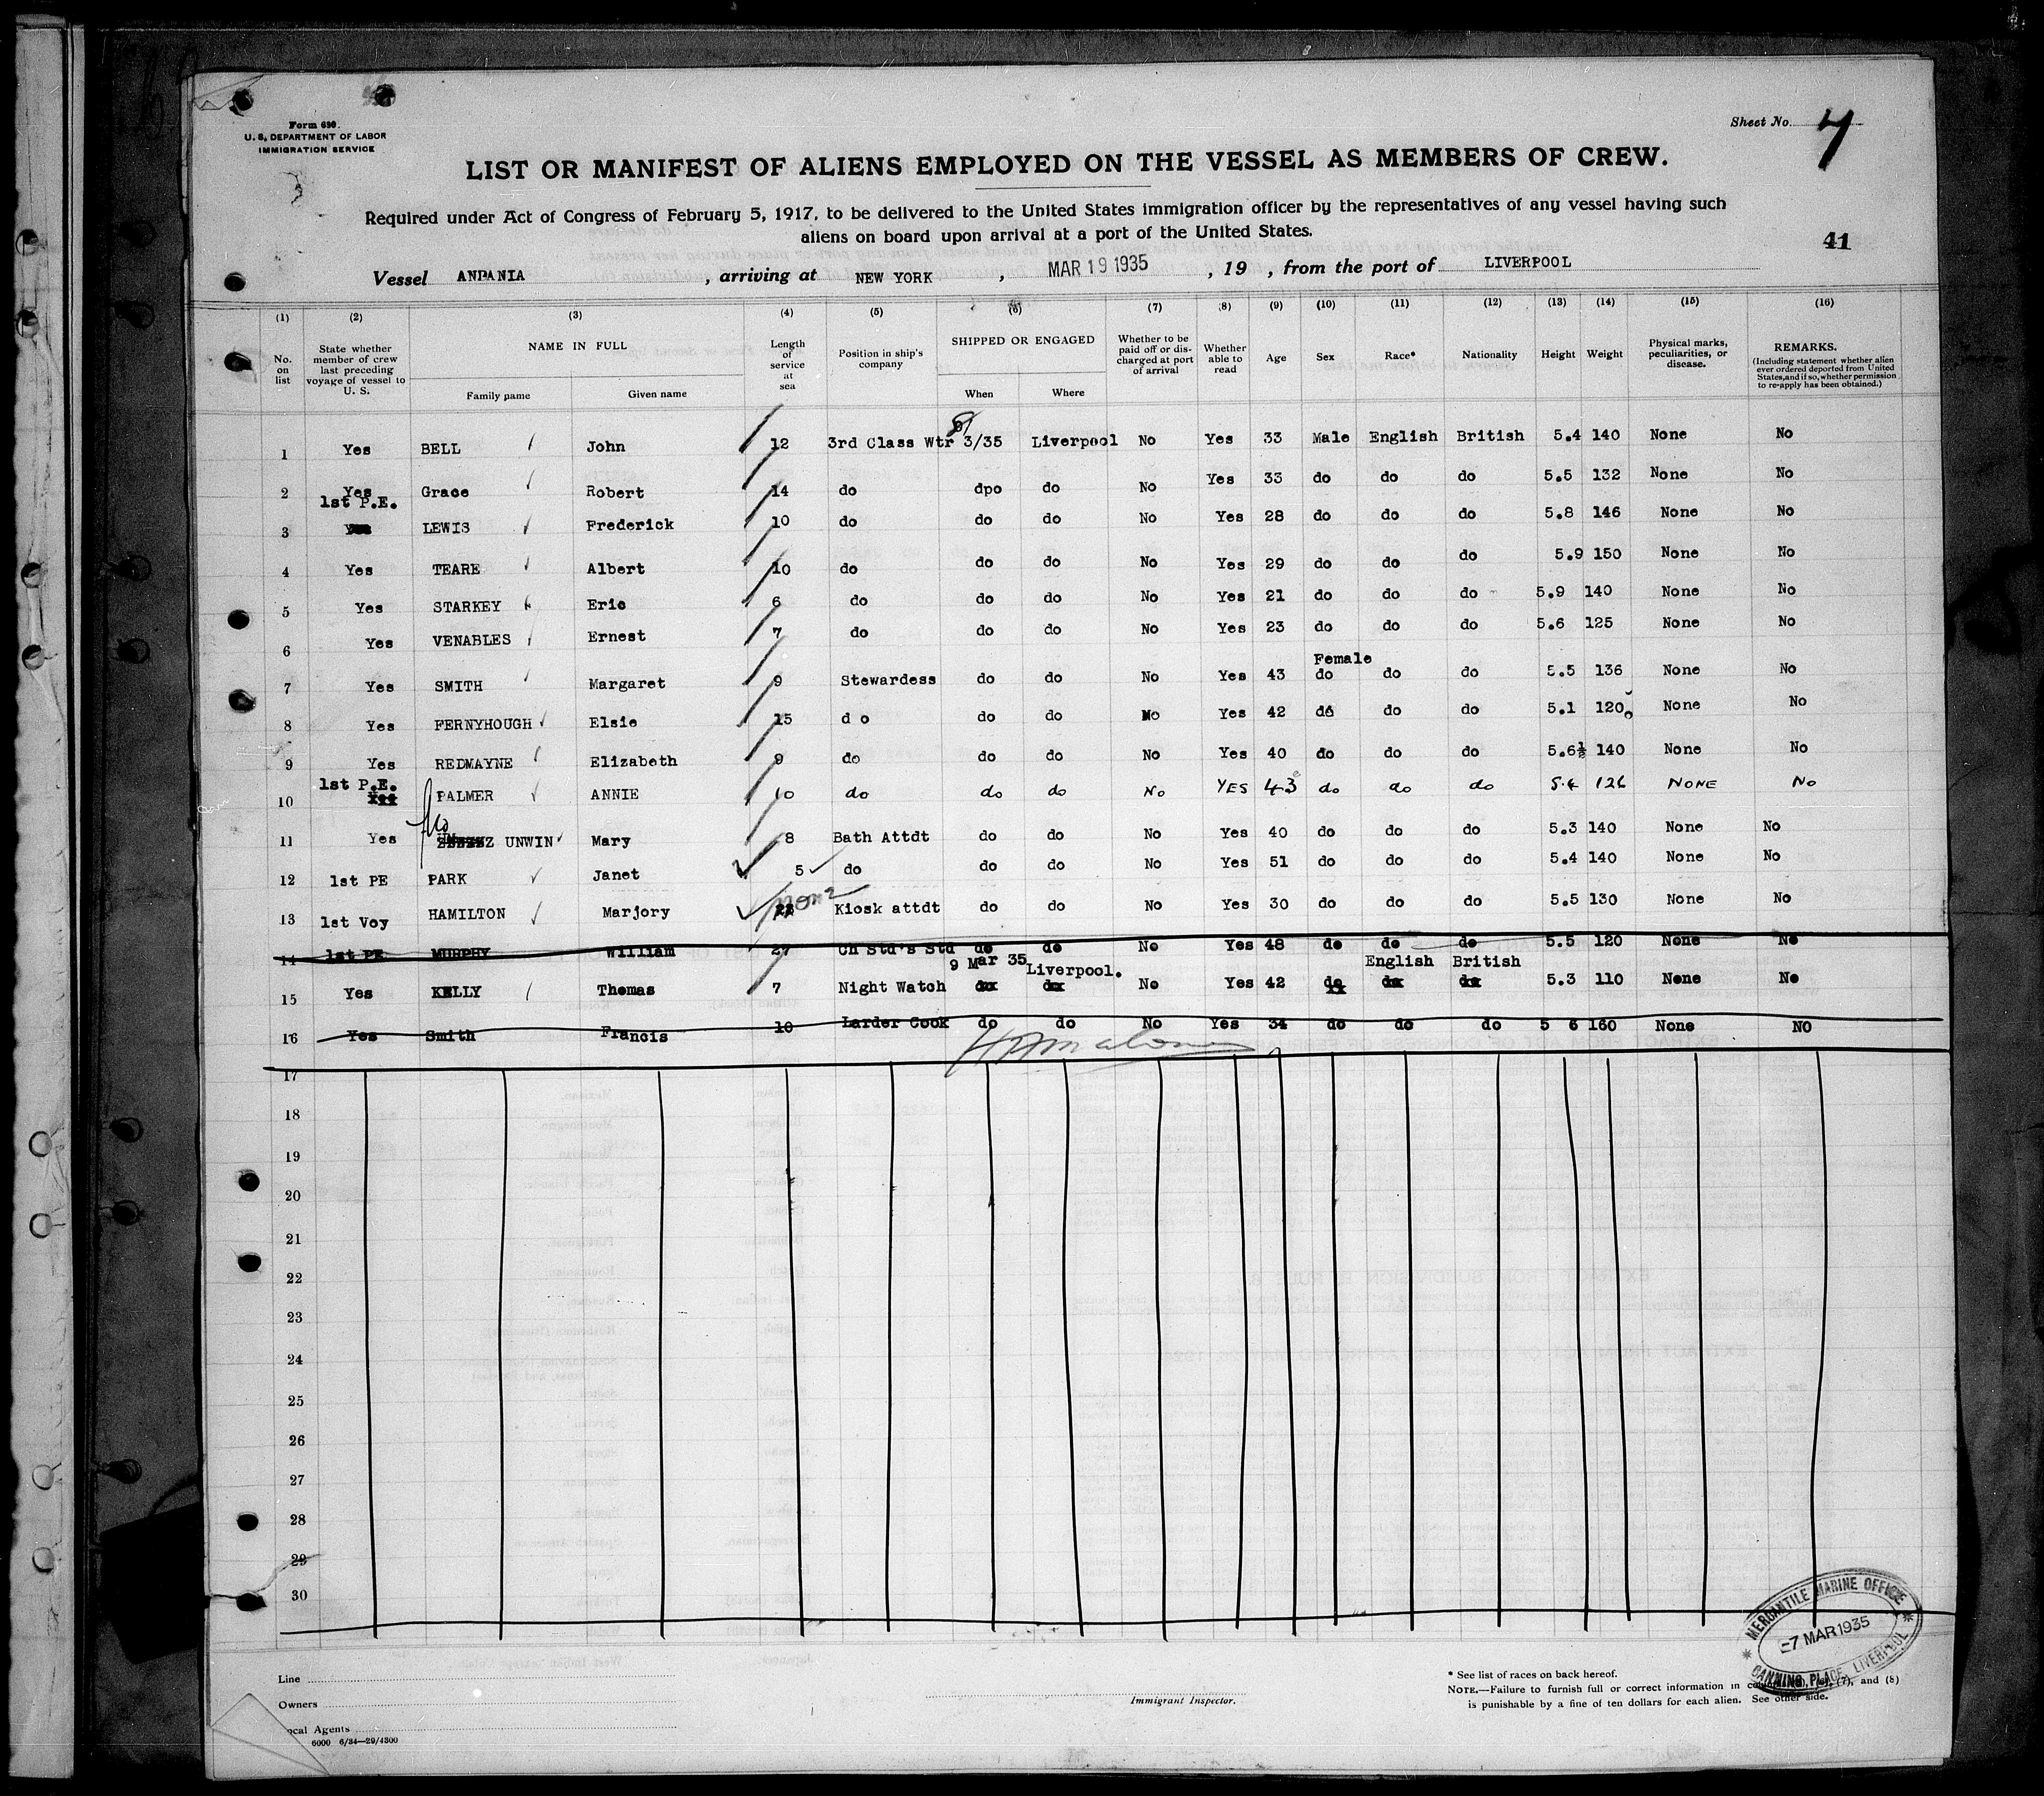 Form 680
U. S. DEPARTMENT OF LABOR
IMMIGRATION SERVICE
Sheet No. 7
LIST OR MANIFEST OF ALIENS EMPLOYED ON THE VESSEL AS MEMBERS OF CREW.
Required under Act of Congress of February 5, 1917, to be delivered to the United States immigration officer by the representatives of any vessel having such
aliens on board upon arrival at a port of the United States.
41
Vessel ANDANIA , arriving at NEW YORK , MAR 19 1935 , 19 , from the port of LIVERPOOL
(1) (2) (3) (4) (5) (6) (7) (8) (9) (10) (11) (12) (13) (14) (15) (16)
No. on list State whether member of crew last preceding voyage of vessel to U. S. NAME IN FULL Family name Given name Length of service at sea Position in ship's company SHIPPED OR ENGAGED When Where Whether to be paid off or discharged at port of arrival Whether able to read Age Sex Race* Nationality Height Weight Physical marks, peculiarities, or disease. REMARKS. (Including statement whether alien ever ordered deported from United States, and if so, whether permission to re-apply has been obtained.)
1 Yes BELL John 12 3rd Class Wtr 3/35 Liverpool No Yes 33 Male English British 5.4 140 None No
2 Yes Grace Robert 14 do dpo do No Yes 33 do do do 5.5 132 None No
1st P.E.
3 Yes LEWIS Frederick 10 do do do No Yes 28 do do do 5.8 146 None No
4 Yes TEARE Albert 10 do do do No Yes 29 do do do 5.9 150 None No
5 Yes STARKEY Eric 6 do do do No Yes 21 do do do 5.9 140 None No
6 Yes VENABLES Ernest 7 do do do No Yes 23 do do do 5.6 125 None No
Female
7 Yes SMITH Margaret 9 Stewardess do do No Yes 43 do do do 5.5 136 None No
8 Yes FERNYHOUGH Elsie 15 d o do do No Yes 42 do do do 5.1 120 None No
9 Yes REDMAYNE Elizabeth 9 do do do No Yes 40 do do do 5.6½ 140 None No
1st P.E.
10 Yes PALMER ANNIE 10 do do do No YES 43 do do do 5.4 126 NONE No
11 Yes UNWIN Mary 8 Bath Attdt do do No Yes 40 do do do 5.3 140 None No
12 1st PE PARK Janet 5 do do do No Yes 51 do do do 5.4 140 None No
13 1st Voy HAMILTON Marjory none Kiosk attdt do do No Yes 30 do do do 5.5 130 None No
14 1st PE MURPHY William 27 Ch Std's Std do do No Yes 48 do do do 5.5 120 None No
9 Mar 35 Liverpool. English British
15 Yes KELLY Thomas 7 Night Watch do do No Yes 42 do do do 5.3 110 None No
16 Yes Smith Francis 10 Larder Cook do do No Yes 34 do do do 5 6 160 None NO
17
18
19
20
21
22
23
24
25
26
27
28
29
30
MERCANTILE MARINE OFFICE
-7 MAR 1935
CANNING PLACE, LIVERPOOL
Line
Owners
Local Agents
6000 6/34—29/4300
Immigrant Inspector.
* See list of races on back hereof.
NOTE.—Failure to furnish full or correct information in (7), and (8)
is punishable by a fine of ten dollars for each alien. See other side.